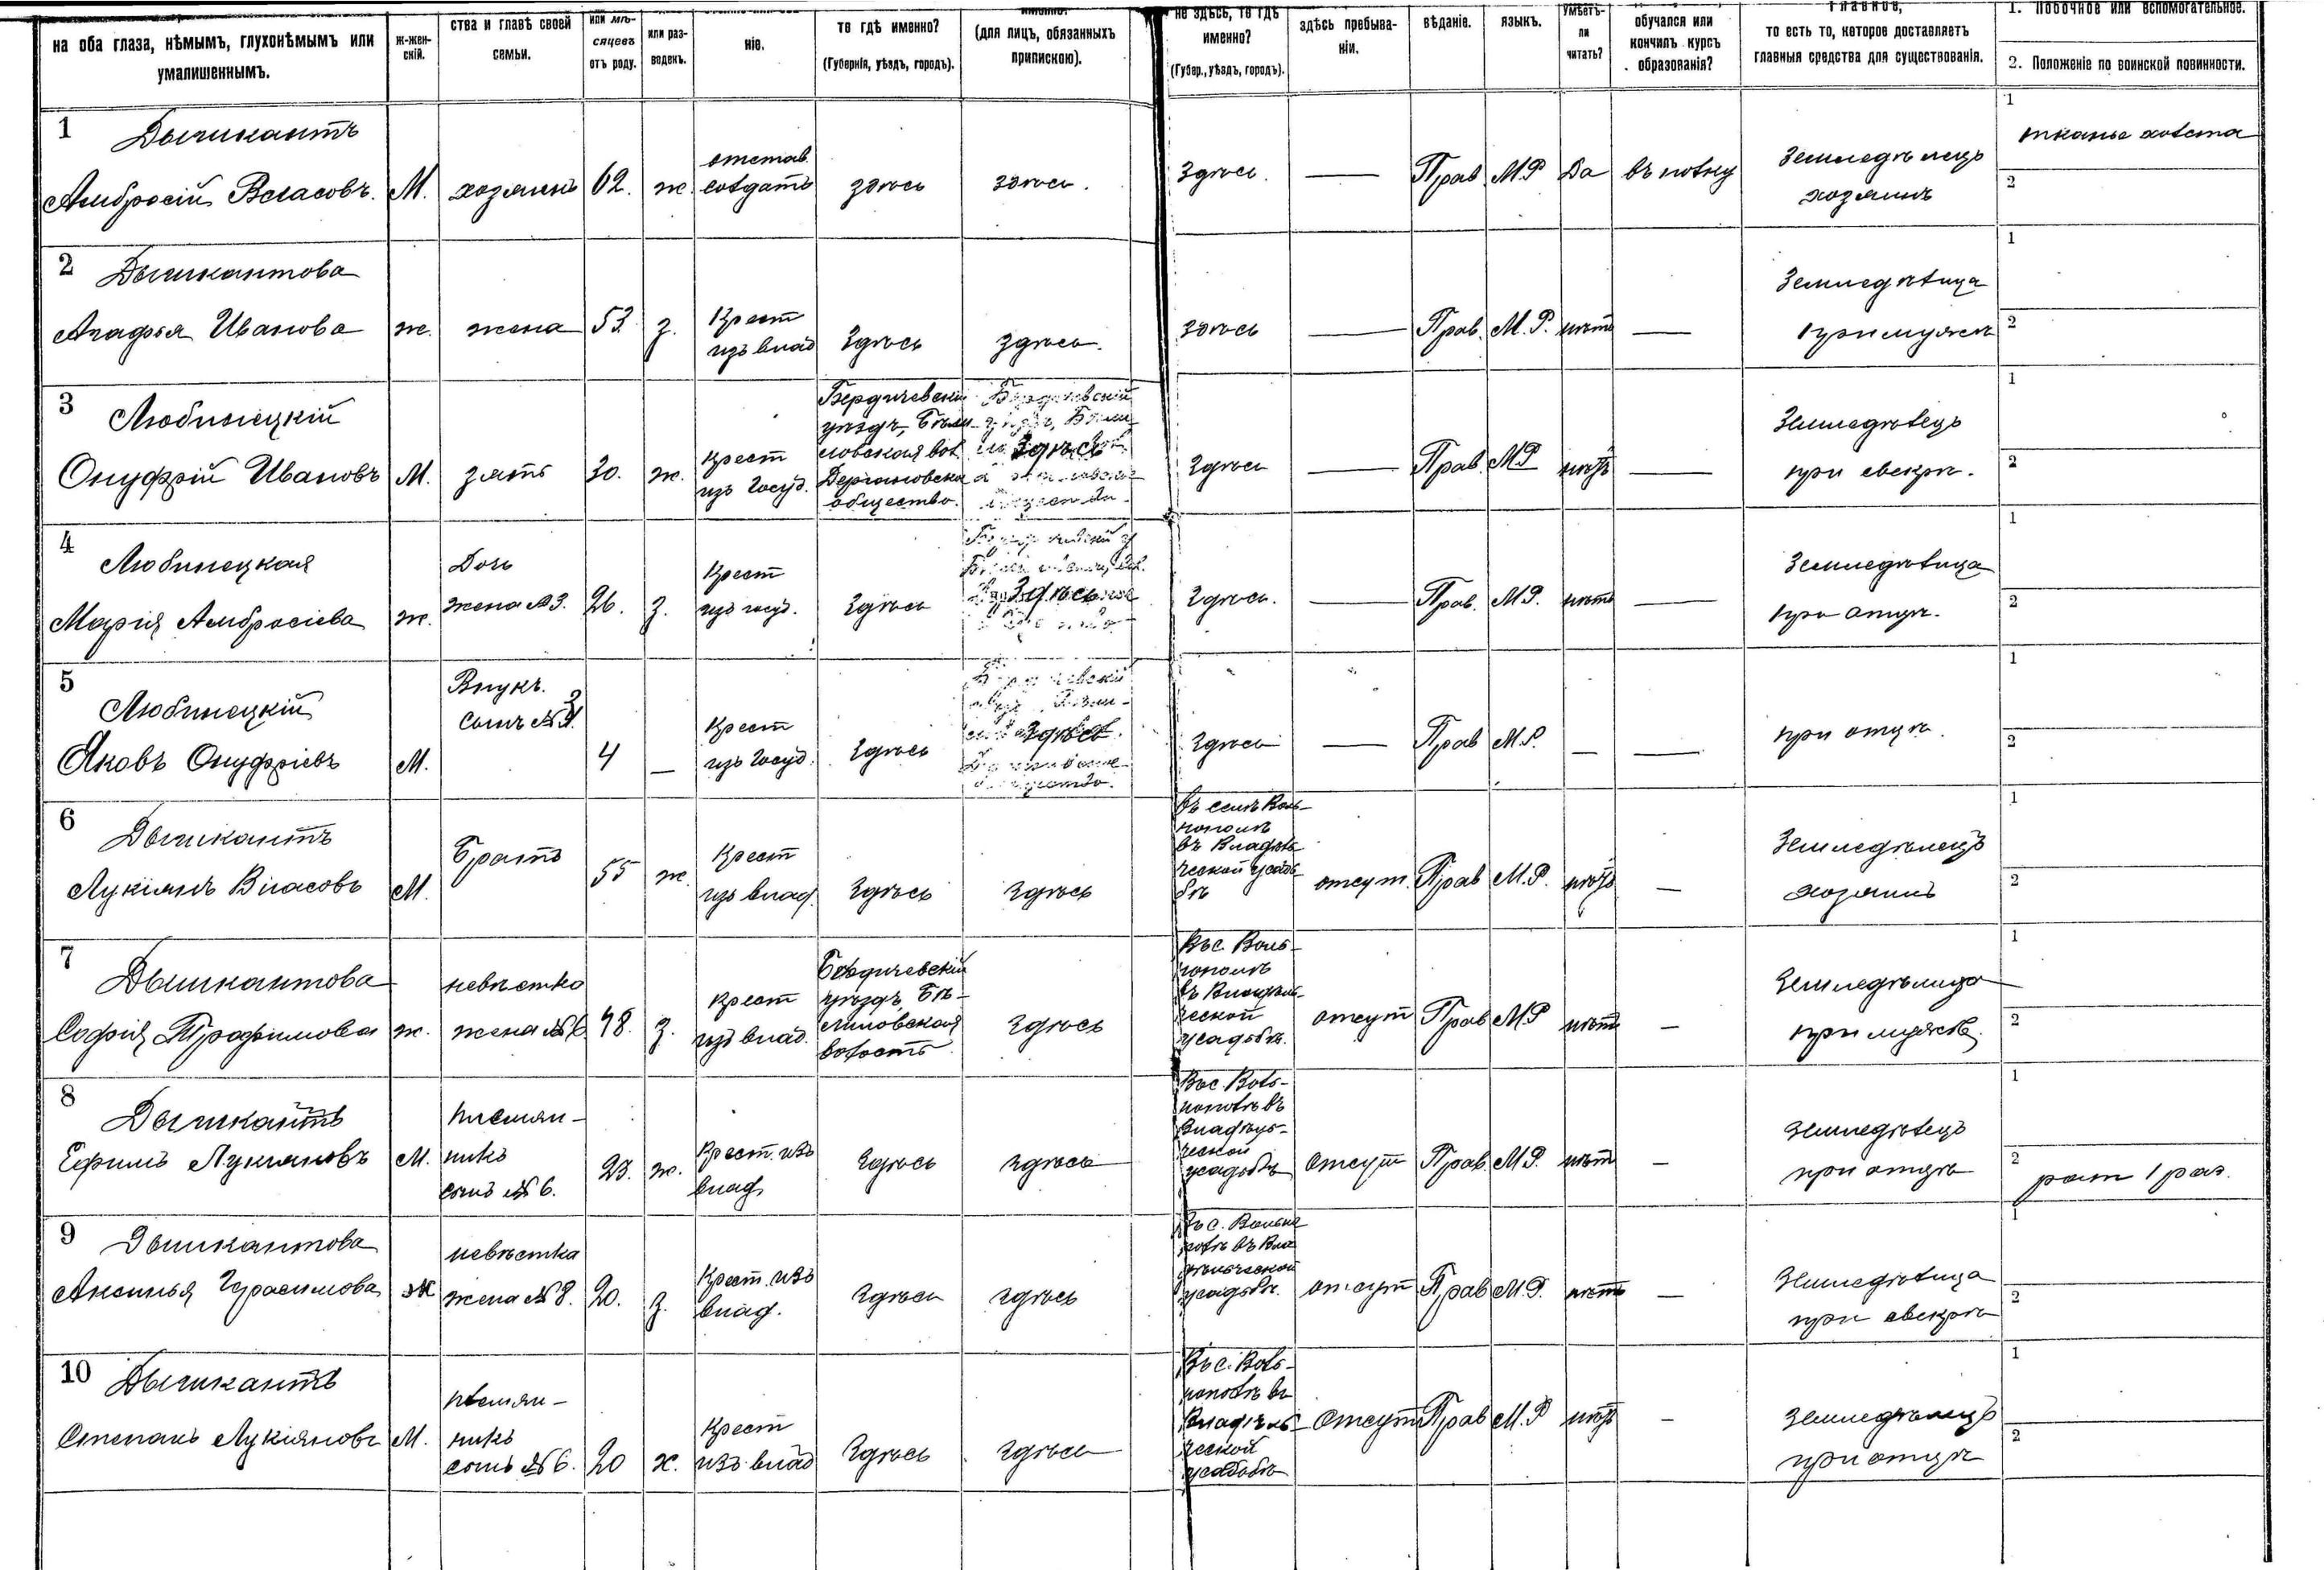 на оба глаза, нѣмымъ, глухонѣмымъ или
умалишеннымъ.
ж-жен-
скій.
ства и главѣ своей
семьи.
или мѣ-
сяцевъ
отъ роду.
или раз-
веденъ.
ніе.
то гдѣ именно?
(Губернія, уѣздъ, городъ).
(для лицъ, обязанныхъ
припискою).
не здѣсь, то гдѣ
именно?
(Губер., уѣздъ, городъ).
здѣсь пребыва-
ніи.
вѣданіе.
языкъ.
Умѣетъ-
ли
читать?
обучался или
кончилъ курсъ
образованія?
главное,
то есть то, которое доставляетъ
главныя средства для существованія.
1. Побочное или вспомогательное.
2. Положеніе по воинской повинности.
1
Дышкантъ
Амбросій Власовъ.
М.
хозяинъ
62.
ж.
отстав.
солдатъ
здѣсь
здѣсь.
Здѣсь.
—
Прав.
М.Р
Да
въ полку
Земледѣлецъ
хозяинъ
1
тканье холста
2
2
Дышкантова
Агафья Иванова
ж.
жена
53.
з.
Крест
изъ влад
Здѣсь
здѣсь.
здѣсь
—
Прав.
М.Р.
нѣтъ
—
Земледѣлица
при мужѣ
1
2
3
Любинецкій
Онуфрій Ивановъ
М.
зять
30.
ж.
крест
изъ Госуд.
Бердичевскій
уѣздъ, Бѣли-
ловская вол
общество.
Здѣсь
Здѣсь
—
Прав.
М.Р
нѣтъ
—
Земледѣлецъ
при свекрѣ.
1
2
4
Любинецкая
Марія Амбросіева
ж.
Дочь
жена №3.
26.
з.
Крест
изъ госуд.
Здѣсь
Здѣсь
Здѣсь.
—
Прав.
М.Р.
нѣтъ
—
Земледѣлица
при отцѣ.
1
2
5
Любинецкій
Яковъ Онуфріевъ
М.
Внукъ.
сынъ №3
4
—
Крест
изъ Госуд.
Здѣсь
здѣсь
Здѣсь
—
Прав
М.Р.
—
—
при отцѣ.
1
2
6
Дышкантъ
Лукіянъ Власовъ
М.
Братъ
55
ж.
Крест
изъ влад.
Здѣсь
Здѣсь
въ Владѣль
ческой усадь
бѣ
отсут.
Прав
М.Р.
нѣтъ
—
Земледѣлецъ
хозяинъ
1
2
7
Дышкантова
Софія Трофимова
ж.
невѣстка
жена №6
48.
з.
крест
изъ влад.
Бердичевскій
уѣздъ Бѣ-
лиловская
волость
Здѣсь
въ Владѣль-
ческой
усадьбѣ.
отсут
Прав
М.Р
нѣтъ
—
Земледѣлица
при мужѣ.
1
2
8
Дышкантъ
Ефимъ Лукіановъ
М.
племян-
никъ
сынъ №6.
23.
ж.
Крест. изъ
влад
Здѣсь
здѣсь
Владѣль-
ческой
усадьбѣ
Отсут
Прав.
М.Р.
нѣт
—
Земледѣлецъ
при отцѣ
1
2
рат 1 раз.
9
Дышкантова
Аксинья Герасимова
ж
невѣстка
жена №8.
20.
з.
Крест. изъ
влад.
Здѣсь
здѣсь
усадьбѣ.
отсут
Прав
М.Р.
нѣтъ
—
Земледѣлица
при свекрѣ
1
2
10
Дышкантъ
Степанъ Лукіяновъ
М.
племян-
никъ
сынъ №6.
20
х.
Крест
изъ влад
Здѣсь
Здѣсь
Владѣль-
ческой
усадьбѣ
Отсут
Прав
М.Р
нѣтъ
—
Земледѣлецъ
при отцѣ
1
2